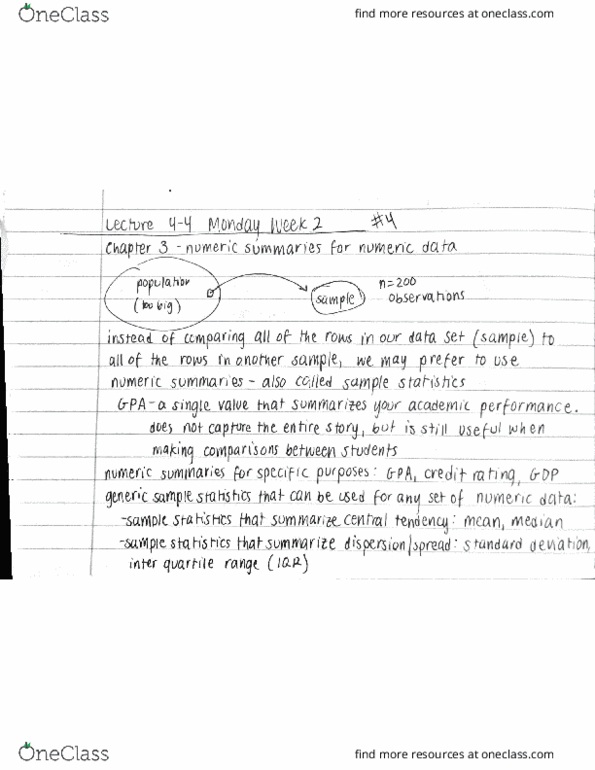 OneClass
find more resources at oneclass.com
Lecture 4-4 Monday Week 2 #4
Chapter 3 - numeric summaries for numeric data
population
(too big)
sample
n=200
observations
instead of comparing all of the rows in our data set (sample) to
all of the rows in another sample, we may prefer to use
numeric summaries - also called sample statistics
GPA - a single value that summarizes your academic performance.
does not capture the entire story, but is still useful when
making comparisons between students
numeric summaries for specific purposes: GPA, credit rating, GDP
generic sample statistics that can be used for any set of numeric data:
-sample statistics that summarize central tendency: mean, median
-sample statistics that summarize dispersion/spread: standard deviation,
inter quartile range (IQR)
OneClass
find more resources at oneclass.com